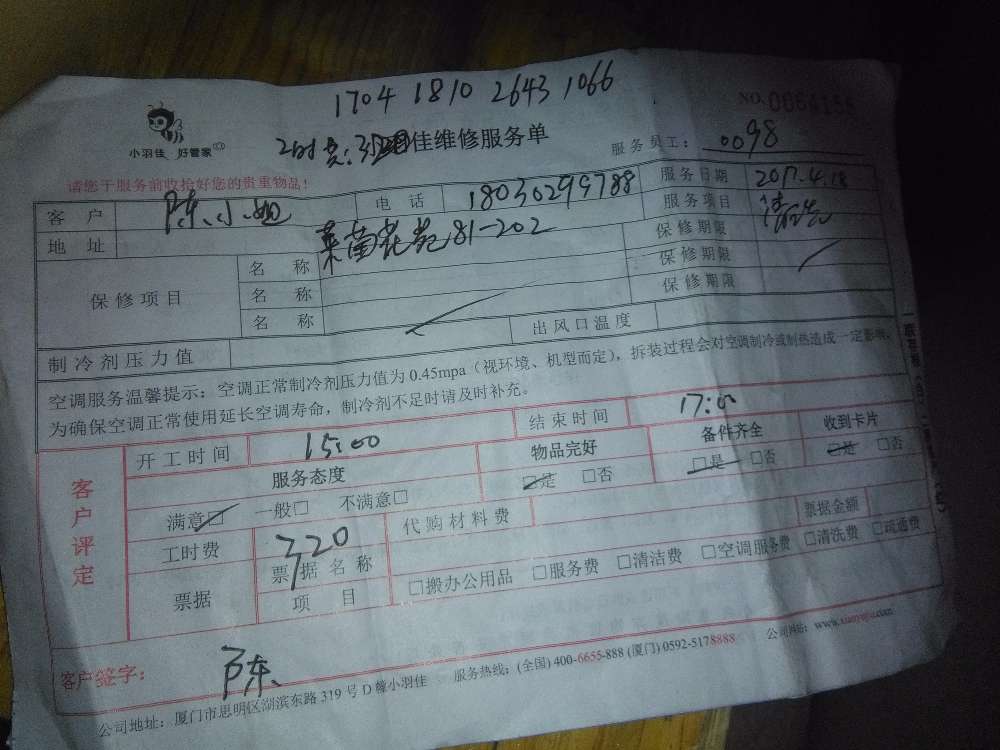 1704 1810 2643 1066
NO. 0064158
小羽佳 好管家
佳维修服务单
服务员工： 0098
请您于服务前收拾好您的贵重物品！
客户 陈小姐 电话 18030299788 服务日期 2017.4.18
地址 81-202 服务项目
保修项目 名称 保修期限
名称 保修期限
名称 保修期限
制冷剂压力值 出风口温度
空调服务温馨提示：空调正常制冷剂压力值为 0.45mpa（视环境、机型而定），拆装过程会对空调制冷或制热造成一定影响，
为确保空调正常使用延长空调寿命，制冷剂不足时请及时补充。
客户评定
开工时间 15:00 结束时间 17:00
服务态度 物品完好 备件齐全 收到卡片
满意□ 一般□ 不满意□ □是 □否 □是 □否 □是 □否
工时费 320 代购材料费 票据金额
票据 票据名称 □搬办公用品 □服务费 □清洁费 □空调服务费 □清洗费 □疏通费
项目
客户签字： 陈
公司地址：厦门市思明区湖滨东路 319 号 D 幢小羽佳 服务热线：(全国) 400-6655-888 (厦门) 0592-5178888 公司网站：www.xiaoyujia.com